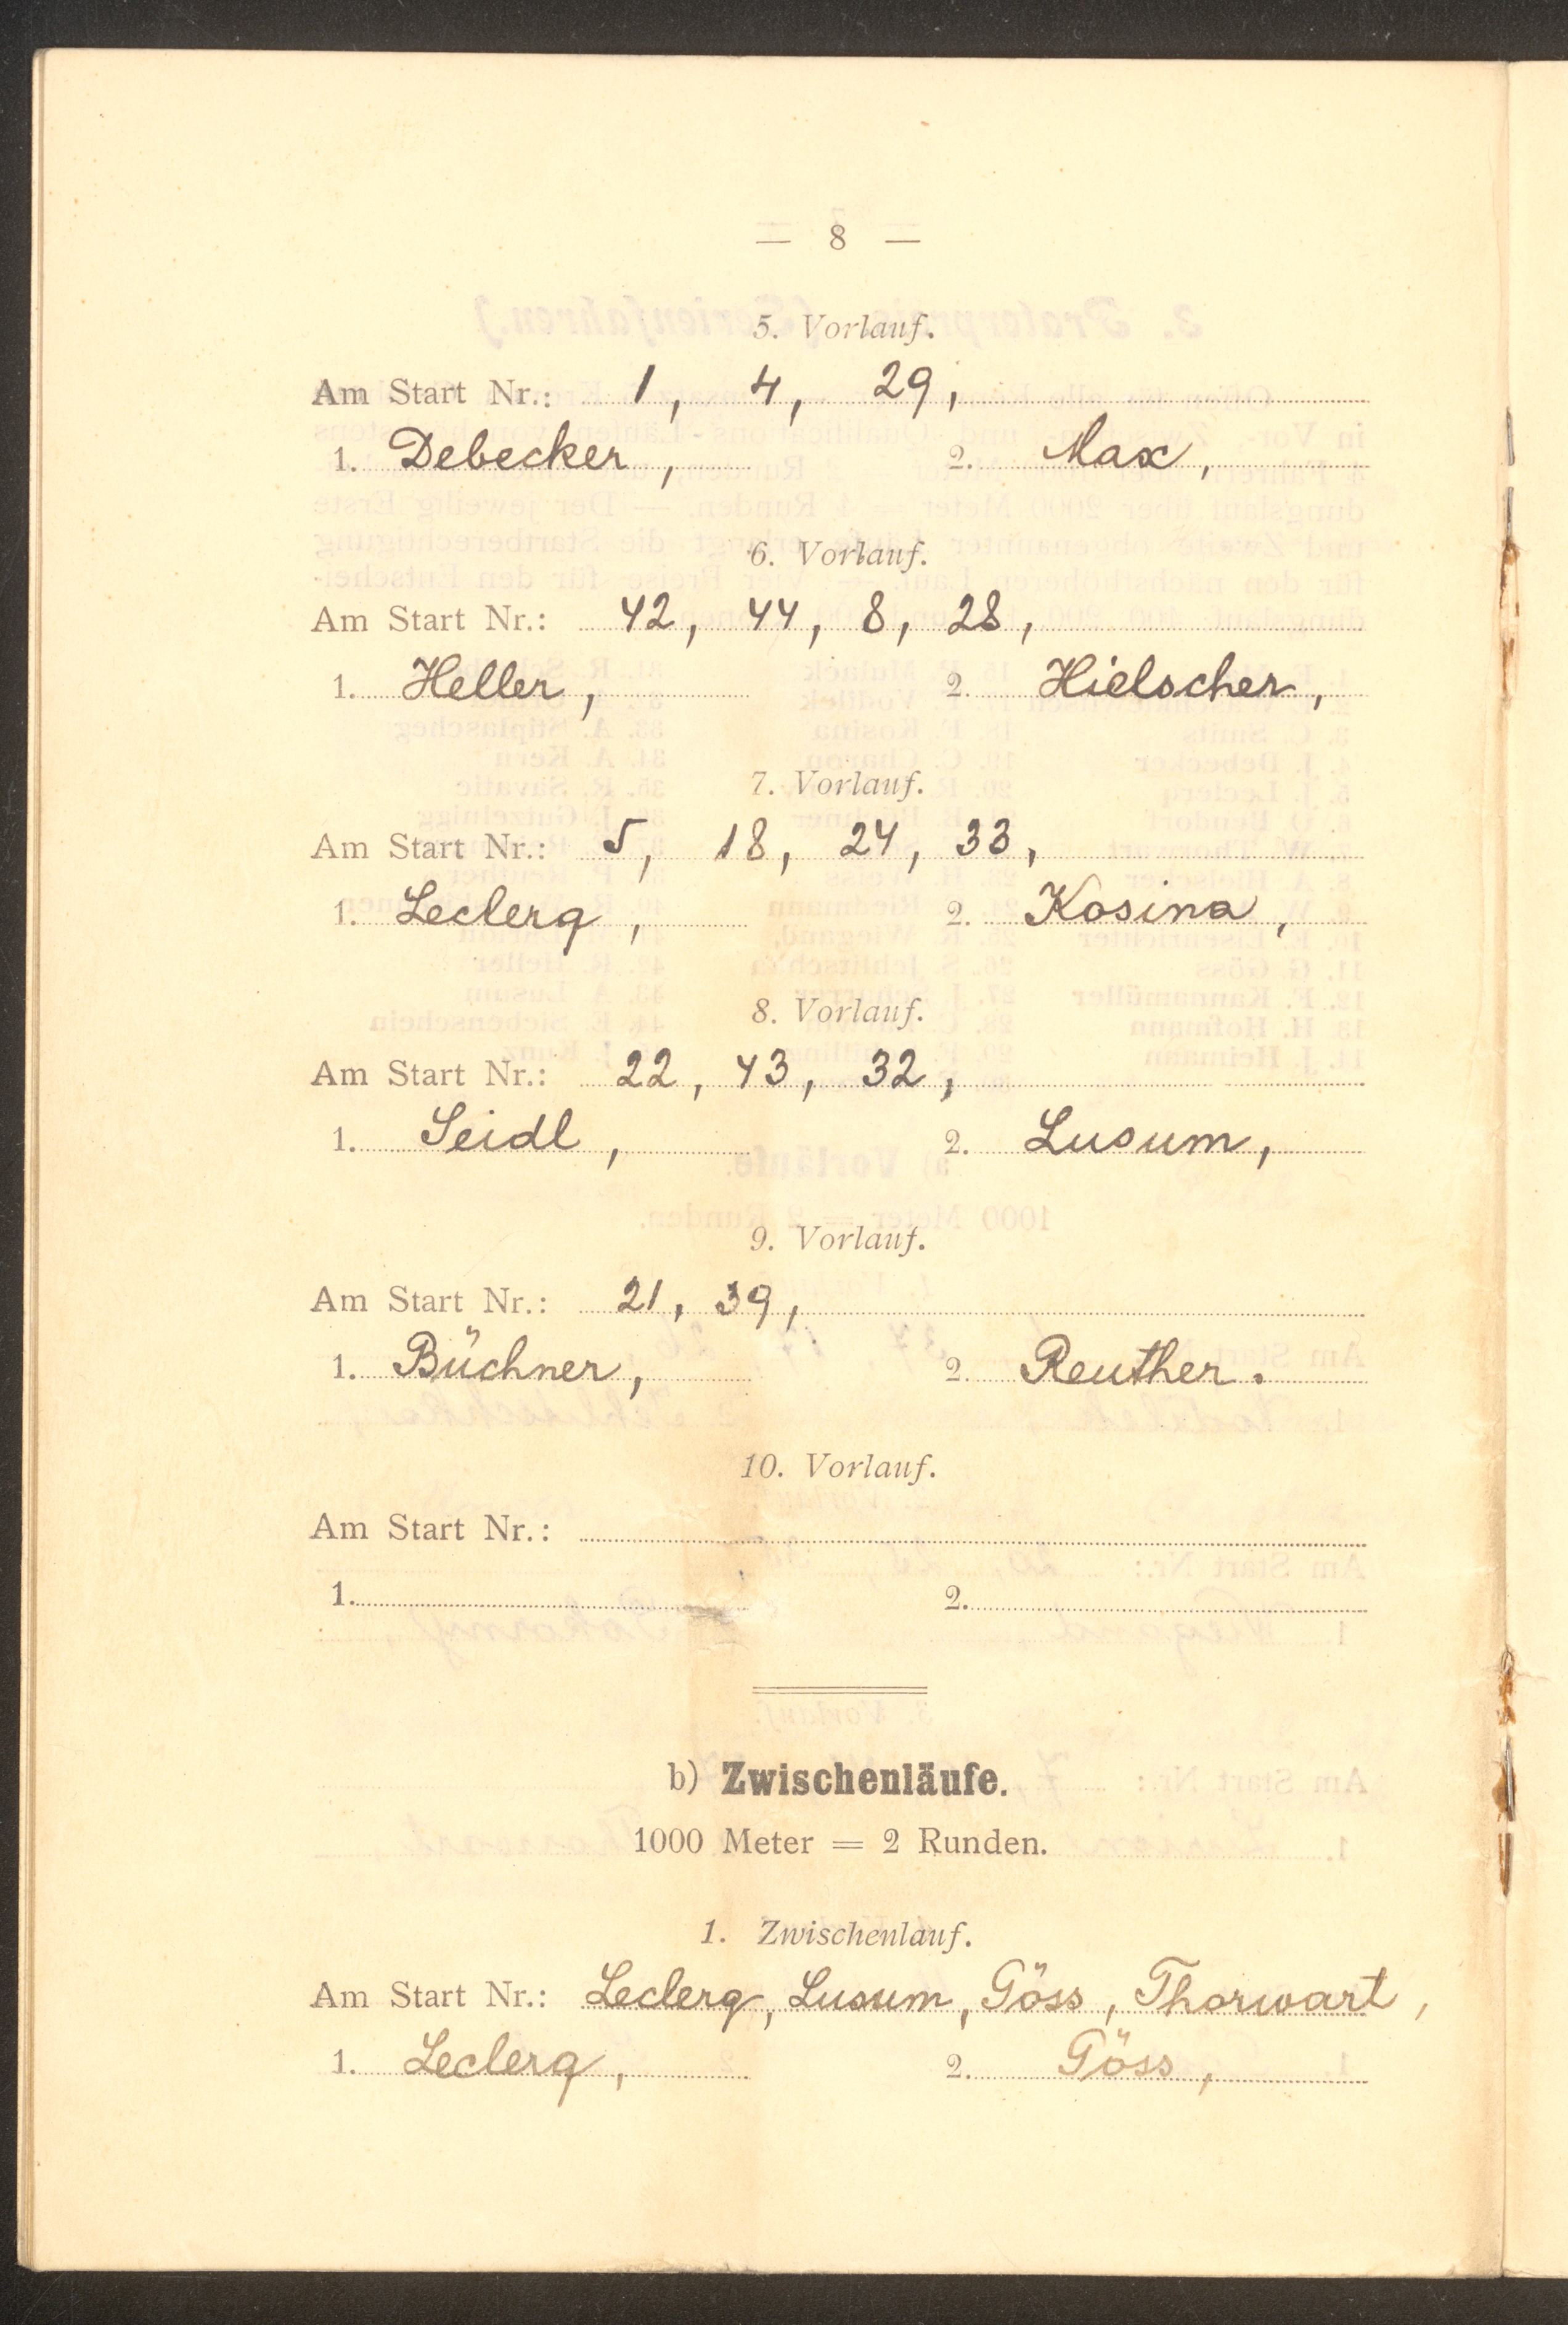 — 8 —
5. Vorlauf.
Am Start Nr.: 1, 4, 29,
1. Debecker, 2. Max,
6. Vorlauf.
Am Start Nr.: 42, 44, 8, 28,
1. Heller, 2. Hielscher,
7. Vorlauf.
Am Start Nr.: 5, 18, 24, 33,
1. Leclerq, 2. Kosina,
8. Vorlauf.
Am Start Nr.: 22, 43, 32,
1. Seidl, 2. Lusum,
9. Vorlauf.
Am Start Nr.: 21, 39,
1. Büchner, 2. Reuther.
10. Vorlauf.
Am Start Nr.:
1. 2.
b) Zwischenläufe.
1000 Meter = 2 Runden.
1. Zwischenlauf.
Am Start Nr.: Leclerq, Lusum, Göss, Thorwart,
1. Leclerq, 2. Göss,